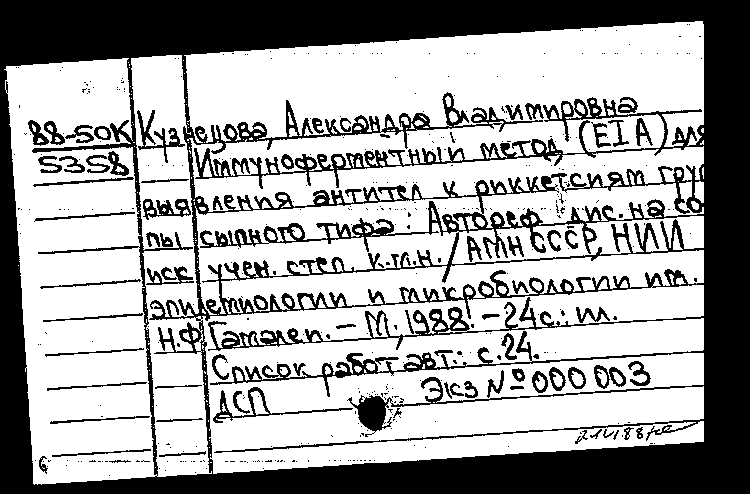 88-50К Кузнецова, Александра Владимировна
5358 Иммуноферментный метод (EIA) для
выявления антител к риккетсиям груп
пы сыпного тифа: Автореф. дис. на со
иск учен. степ. к.м.н. / АМН СССР, НИИ
эпидемиологии и микробиологии им.
Н.Ф. Гамалеи. - М., 1988. - 24 с.: ил.
Список работ авт.: с. 24.
ДСП Экз № 000 003